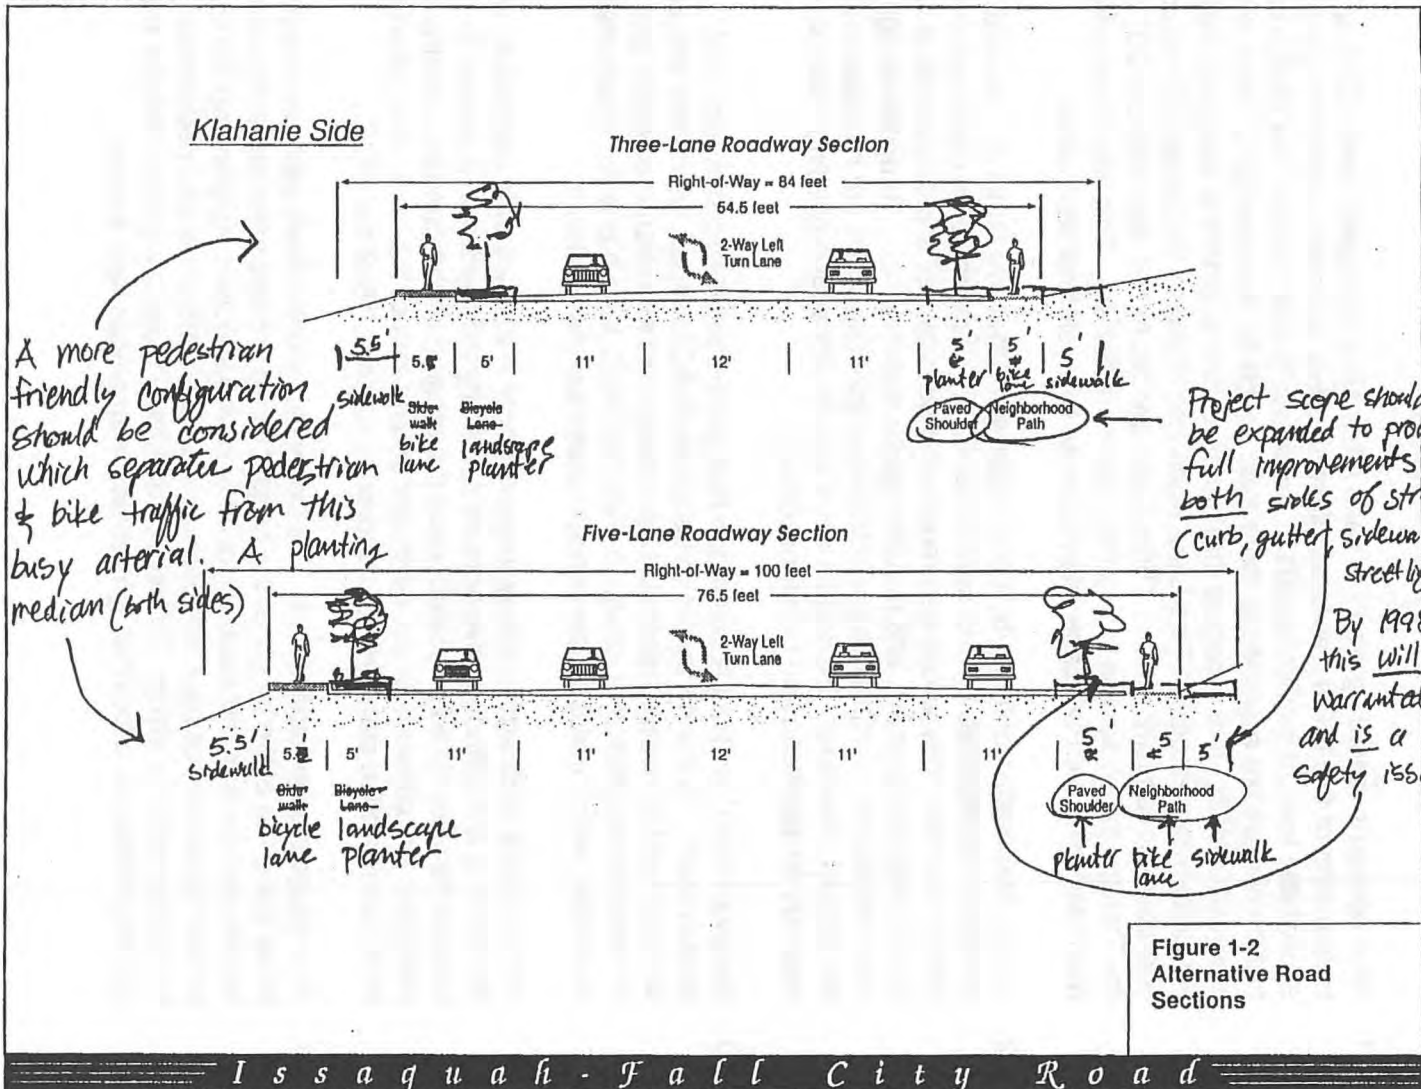 Klahanie Side
Three-Lane Roadway Section
Right-of-Way = 84 feet
54.5 feet
2-Way Left
Turn Lane
5.5' 5' 11' 12' 11' 5' 5' 5'
sidewalk
Side-
walk
bike
lane
Bicycle
Lane
landscape
planter
planter bike lane sidewalk
Paved
Shoulder
Neighborhood
Path
A more pedestrian
friendly configuration
should be considered
which separates pedestrian
& bike traffic from this
busy arterial. A planting
median (both sides)
Project scope should
be expanded to
full improvements
both sides of
(curb, gutter, sidewalk
street
By 1998
this will
warranted
and is a
safety
Five-Lane Roadway Section
Right-of-Way = 100 feet
76.5 feet
2-Way Left
Turn Lane
5.5' 5' 11' 11' 12' 11' 11' 5 5 5'
sidewalk
Side-
walk
bicycle
lane
Bicycle
Lane
landscape
planter
Paved
Shoulder
Neighborhood
Path
planter bike lane sidewalk
Figure 1-2
Alternative Road
Sections
Issaquah-Fall City Road